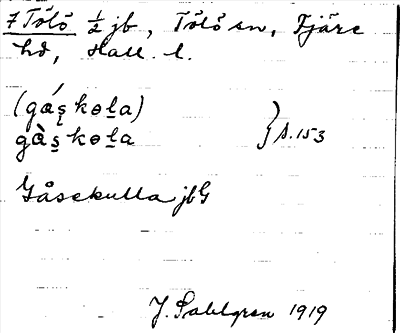 7 Tölö ½ jb, Tölö sn, Fjäre
hd, Hall. l.
(gá̱s̨kɵḻa)
gàs̱kɵḻa } s. 153
Gåsekulla jbG
J. Sahlgren 1919